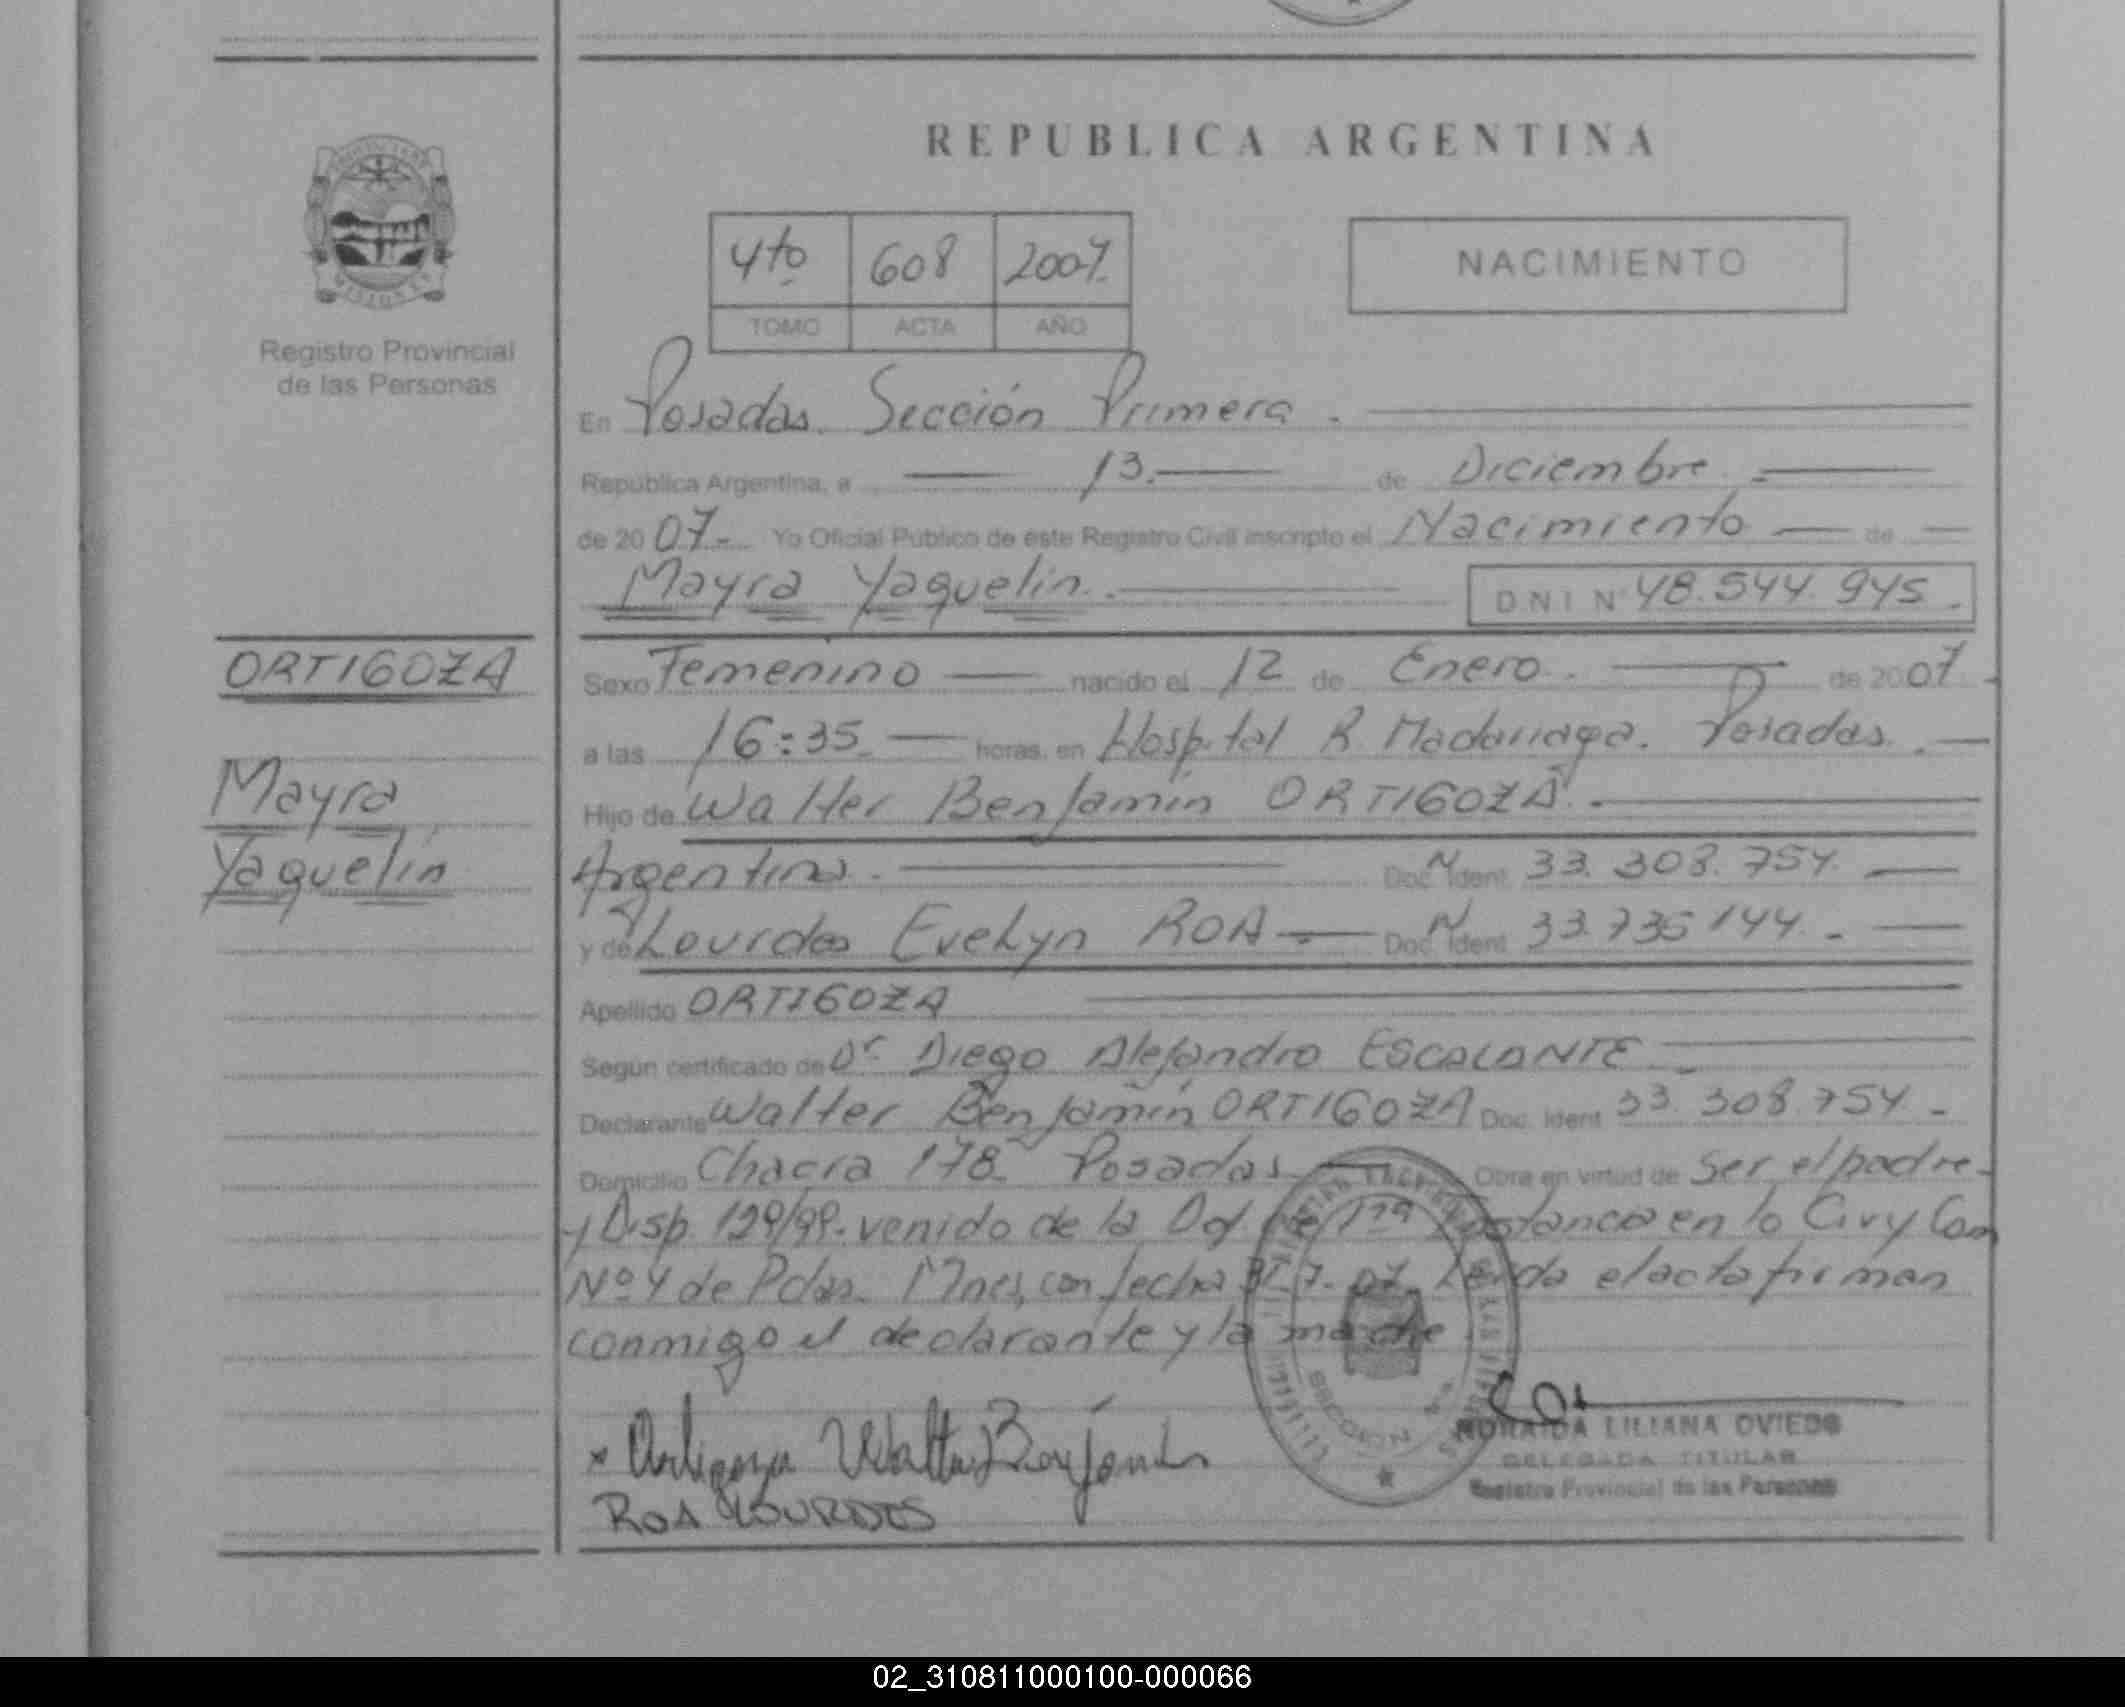 REPUBLICA ARGENTINA
4to 608 2007.
TOMO ACTA AÑO
NACIMIENTO
MISIONES
Registro Provincial
de las Personas
En Posadas. Sección Primera.
República Argentina, a 13. de Diciembre
de 2007.- Yo Oficial Público de este Registro Civil inscripto el Nacimiento de
Mayra Yaquelin. DNI Nº 48.544.945.
ORTIGOZA
Mayra
Yaquelin
Sexo Femenino nacido el 12 de Enero. de 2007.
a las 16:35 horas, en Hospital R. Madariaga. Posadas.
Hijo de Walter Benjamin ORTIGOZA.
Argentina. Doc. Ident. 33.308.754.
y de Lourdes Evelyn ROA Doc. Ident. 33.735.144.
Apellido ORTIGOZA
Según certificado de Dr Diego Alejandro ESCALANTE
Declarante Walter Benjamin ORTIGOZA Doc. Ident. 33.308.754.
Domicilio Chacra 178 Posadas Obra en virtud de Ser el padre.
y Disp. 129/99. venido de la de 1ra Instancia en lo Civ y Com
Nº 4 de Pdas. Mnes, con fecha 7.07. Leída el acta firman
conmigo el declarante y la madre
Ortigoza Walter Benjamin
ROA LOURDES
LILIANA OVIEDO
DELEGADA TITULAR
Registro Provincial de las Personas
02_310811000100-000066